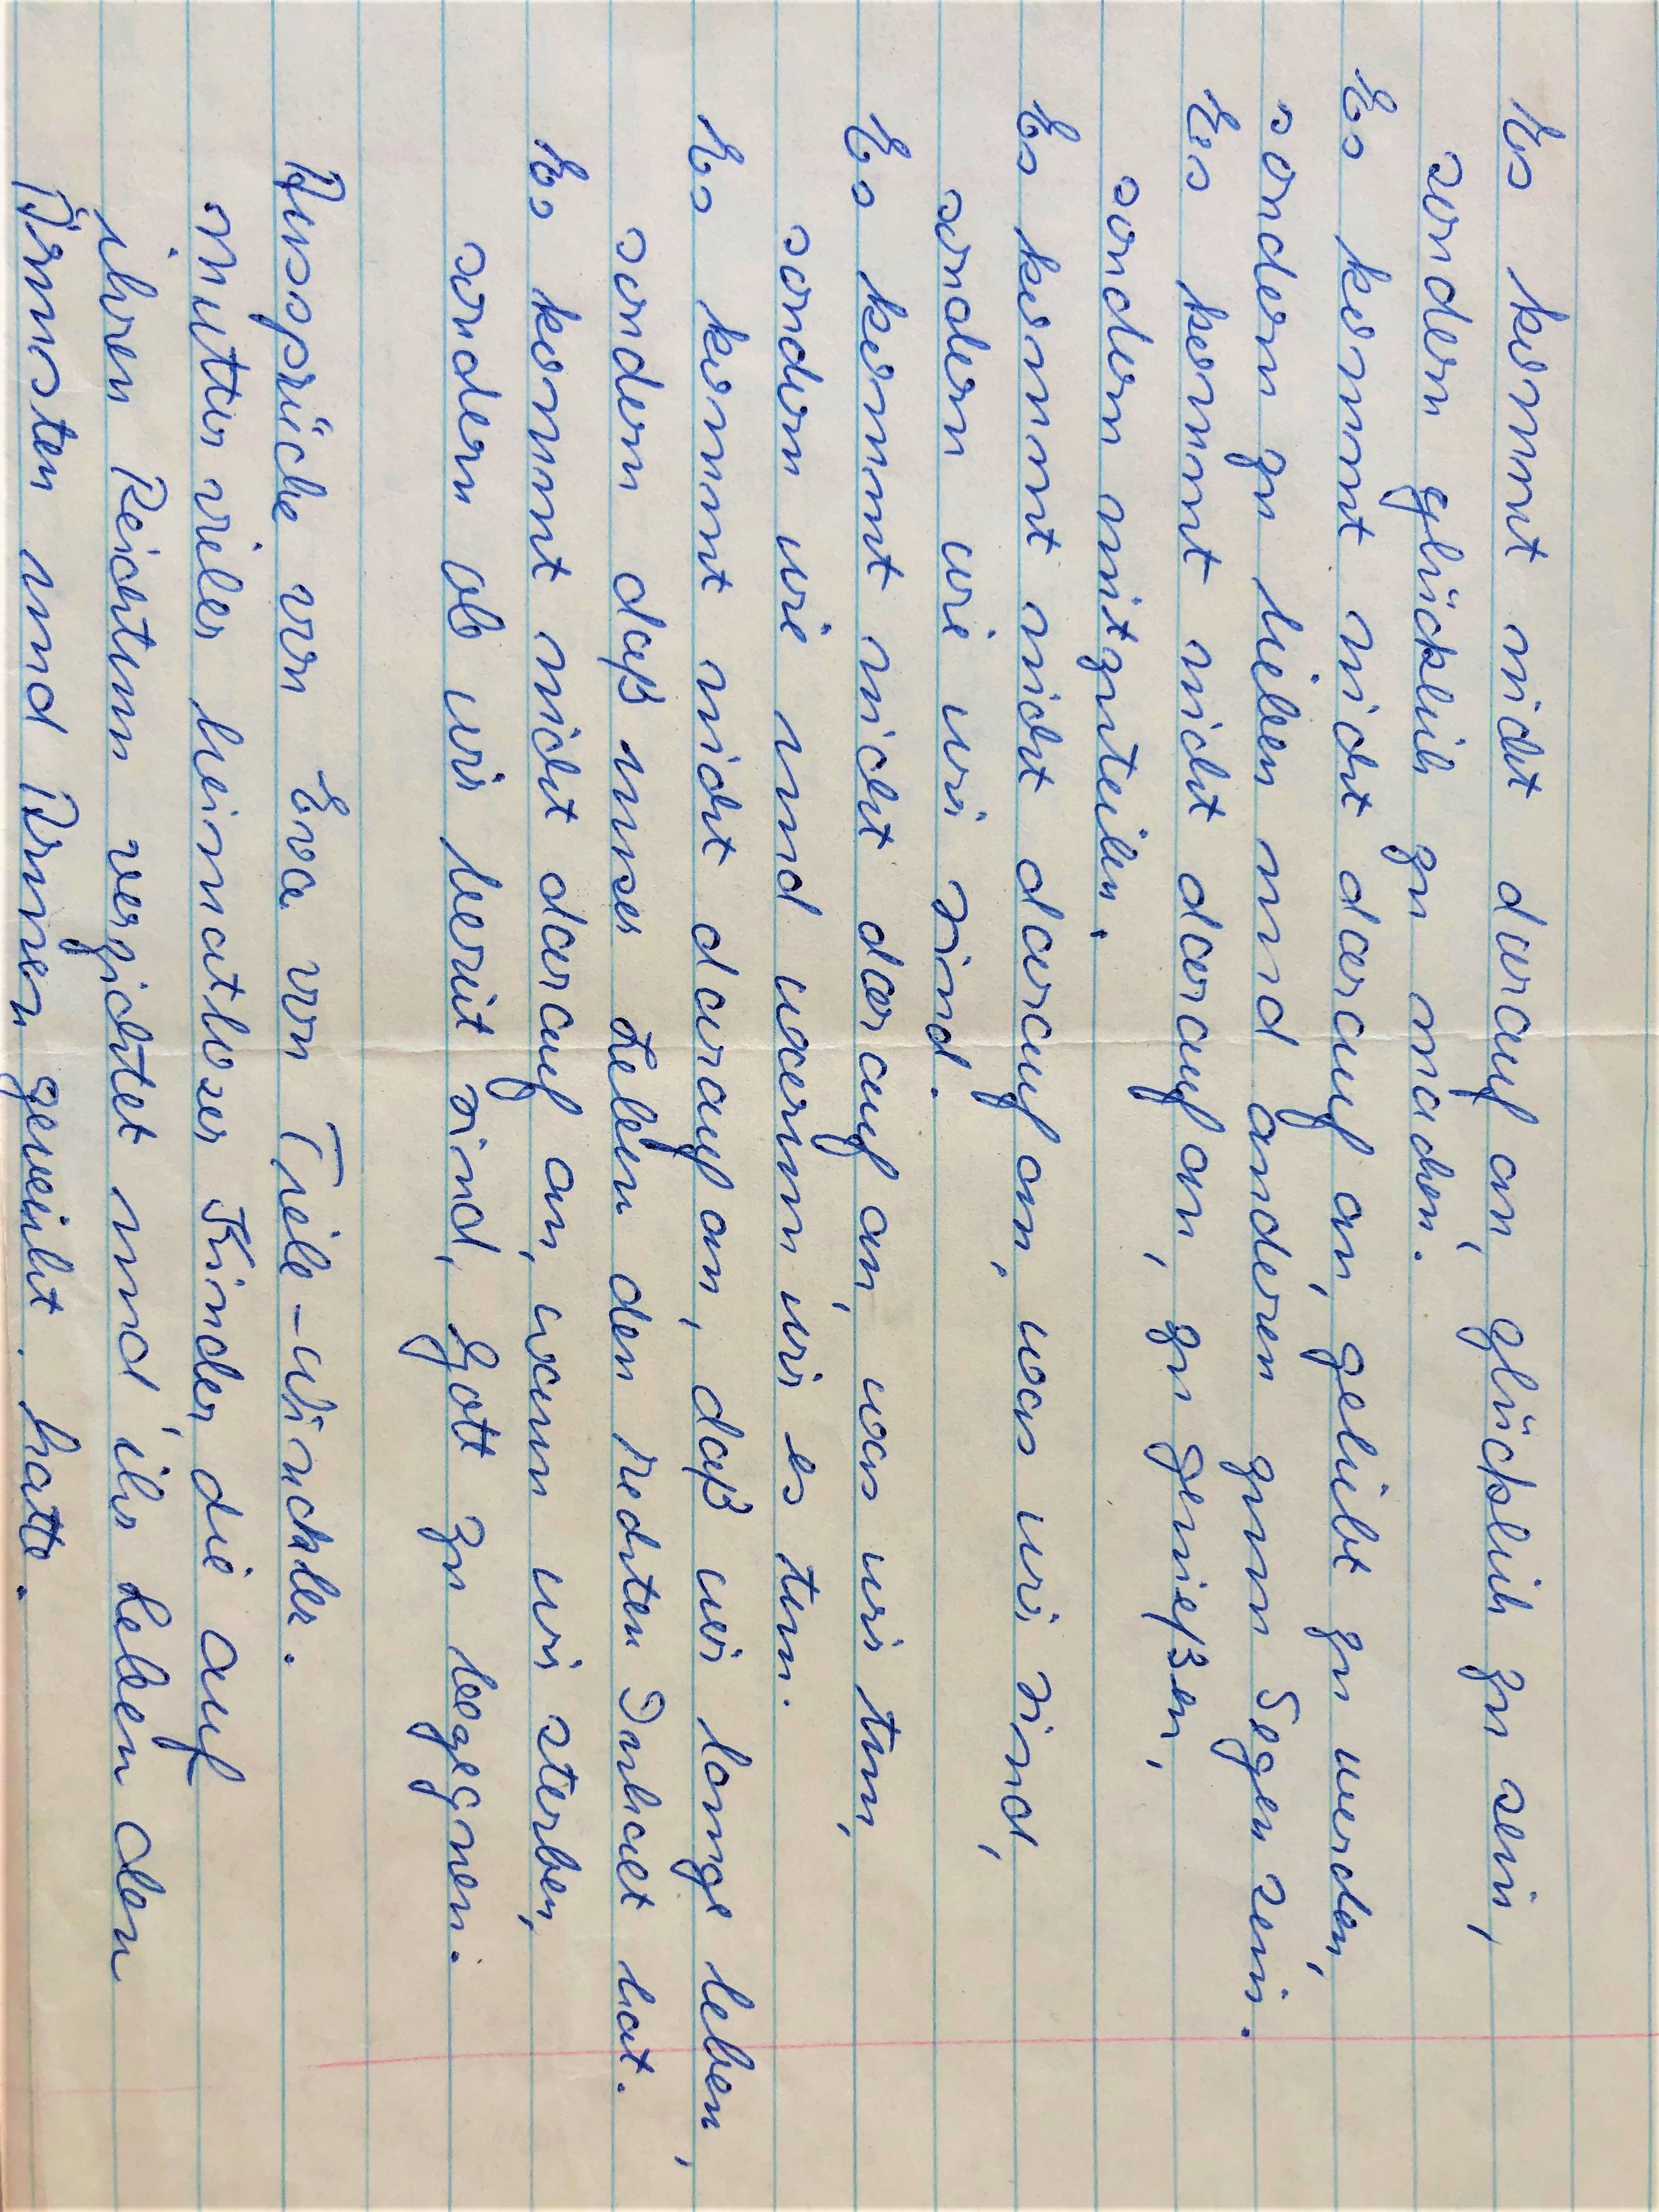 Es kommt nicht darauf an, glücklich zu sein,
sondern glücklich zu machen.
Es kommt nicht darauf an, geliebt zu werden,
sondern zu lieben und anderen zum Segen sein.
Es kommt nicht darauf an, zu genießen,
sondern mitzuteilen.
Es kommt nicht darauf an, was wir sind,
sondern wie wir sind.
Es kommt nicht darauf an, was wir tun,
sondern wie und warum wir es tun.
Es kommt nicht darauf an, daß wir lange leben,
sondern daß unser Leben den rechten Inhalt hat.
Es kommt nicht darauf an, wann wir sterben,
sondern ob wir bereit sind, Gott zu begegnen.
Aussprüche von Eva von Tiele-Winckler.
Mutter vieler heimatloser Kinder, die auf
ihren Reichtum verzichtet und ihr Leben den
Ärmsten und Armen geweiht hatte.